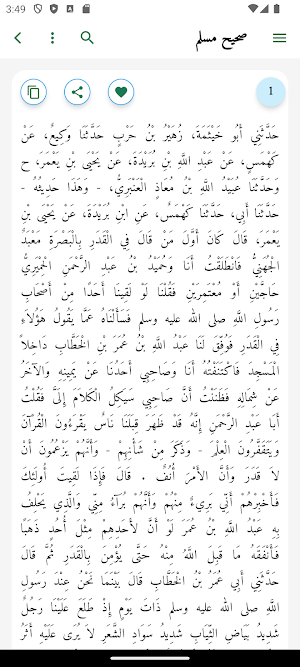 3:49
صحيح مسلم
1
حَدَّثَنِي أَبُو خَيْثَمَةَ، زُهَيْرُ بْنُ حَرْبٍ حَدَّثَنَا وَكِيعٌ، عَنْ
كَهْمَسٍ، عَنْ عَبْدِ اللَّهِ بْنِ بُرَيْدَةَ، عَنْ يَحْيَى بْنِ يَعْمَرَ، ح
وَحَدَّثَنَا عُبَيْدُ اللَّهِ بْنُ مُعَاذٍ الْعَنْبَرِيُّ، - وَهَذَا حَدِيثُهُ -
حَدَّثَنَا أَبِي، حَدَّثَنَا كَهْمَسٌ، عَنِ ابْنِ بُرَيْدَةَ، عَنْ يَحْيَى بْنِ
يَعْمَرَ، قَالَ كَانَ أَوَّلَ مَنْ قَالَ فِي الْقَدَرِ بِالْبَصْرَةِ مَعْبَدٌ
الْجُهَنِيُّ فَانْطَلَقْتُ أَنَا وَحُمَيْدُ بْنُ عَبْدِ الرَّحْمَنِ الْحِمْيَرِيُّ
حَاجَّيْنِ أَوْ مُعْتَمِرَيْنِ فَقُلْنَا لَوْ لَقِينَا أَحَدًا مِنْ أَصْحَابِ
رَسُولِ اللَّهِ صلى الله عليه وسلم فَسَأَلْنَاهُ عَمَّا يَقُولُ هَؤُلاَءِ
فِي الْقَدَرِ فَوُفِّقَ لَنَا عَبْدُ اللَّهِ بْنُ عُمَرَ بْنِ الْخَطَّابِ دَاخِلاً
الْمَسْجِدَ فَاكْتَنَفْتُهُ أَنَا وَصَاحِبِي أَحَدُنَا عَنْ يَمِينِهِ وَالآخَرُ
عَنْ شِمَالِهِ فَظَنَنْتُ أَنَّ صَاحِبِي سَيَكِلُ الْكَلاَمَ إِلَىَّ فَقُلْتُ
أَبَا عَبْدِ الرَّحْمَنِ إِنَّهُ قَدْ ظَهَرَ قِبَلَنَا نَاسٌ يَقْرَءُونَ الْقُرْآنَ
وَيَتَقَفَّرُونَ الْعِلْمَ - وَذَكَرَ مِنْ شَأْنِهِمْ - وَأَنَّهُمْ يَزْعُمُونَ أَنْ
لاَ قَدَرَ وَأَنَّ الأَمْرَ أُنُفٌ . قَالَ فَإِذَا لَقِيتَ أُولَئِكَ
فَأَخْبِرْهُمْ أَنِّي بَرِيءٌ مِنْهُمْ وَأَنَّهُمْ بُرَآءُ مِنِّي وَالَّذِي يَحْلِفُ
بِهِ عَبْدُ اللَّهِ بْنُ عُمَرَ لَوْ أَنَّ لأَحَدِهِمْ مِثْلَ أُحُدٍ ذَهَبًا
فَأَنْفَقَهُ مَا قَبِلَ اللَّهُ مِنْهُ حَتَّى يُؤْمِنَ بِالْقَدَرِ ثُمَّ قَالَ
حَدَّثَنِي أَبِي عُمَرُ بْنُ الْخَطَّابِ قَالَ بَيْنَمَا نَحْنُ عِنْدَ رَسُولِ
اللَّهِ صلى الله عليه وسلم ذَاتَ يَوْمٍ إِذْ طَلَعَ عَلَيْنَا رَجُلٌ
شَدِيدُ بَيَاضِ الثِّيَابِ شَدِيدُ سَوَادِ الشَّعَرِ لاَ يُرَى عَلَيْهِ أَثَرُ